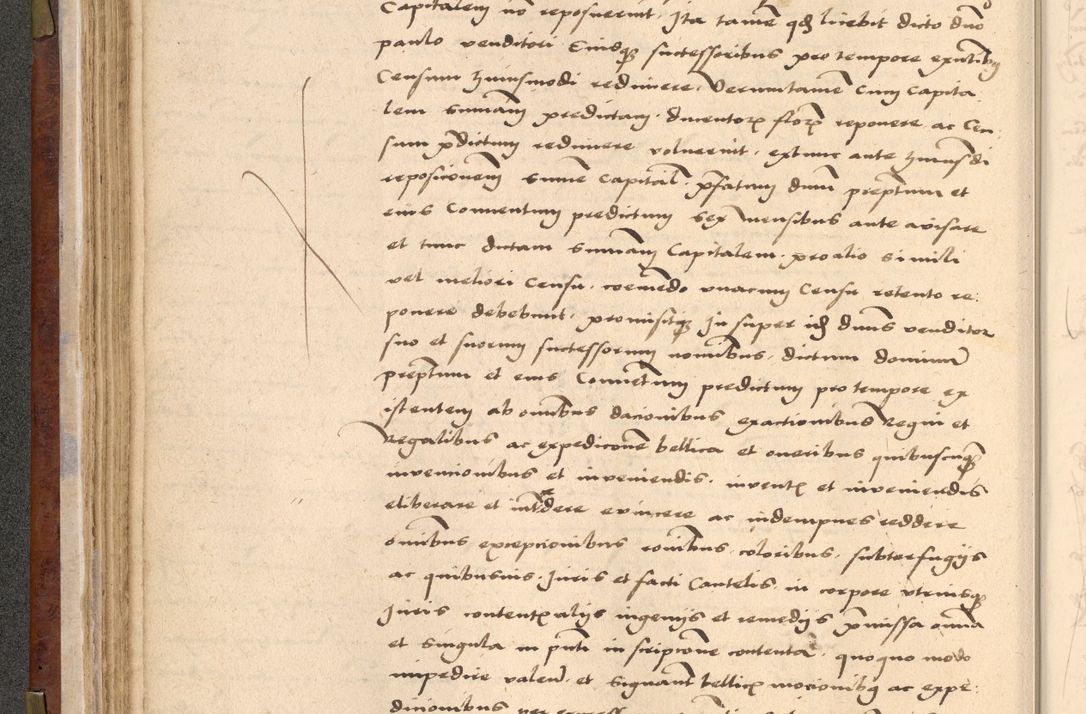 Capitalem nō reposuerint. Ita tamē qđ licebit dicto dnō
paulo venditori Eiusqꝫ successoribus pro tempore exn̄tibꝯ
Censum huiusmodi redimere. Verumtamē Cum Capita:
lem sum̄am predictam. ducentorꝝ florꝝ reponere ac Cen:
sum p̄dictum redimere voluerint. extunc ante huiusdi
reposicionem̄ summe Capital̄. p̄fatum dnm̄ prep̄tum et
eius Conuentum predictum sex mensibus ante auisare
et tunc dictam sum̄am Capitalem. pro alio simili
vel meliori Censu. coemēdo vnacum Censu retento re:
ponere debebunt. promisitqꝫ Insuper idē dnūs venditor
suo et suorum successorum noīnibus. dictum dominum̄
prep̄tum et eius Conuētum predictum pro tempore ex
istentem ab omībus dacionibus exactionibus Regni et
Regalibus ac expedicōne bellica et oneribus quibuscūqꝫ
inuenionibus et inueniendis. inuentꝭ et inueniendis
eliberare et int̄cedere euincere ac indempnes reddere
omībus excepcionibus rōnibus coloribus. subterfugijs
ac quibusuis. Iuris et facti Cautelis in corpore vtriusqꝫ
Iuris contentꝭ alijs ingenijs et remedijs p̄missa omīa
et singula in pn̄ti inscripcōne contenta. quoquo modo
impedire valeñ. et signan̄t bellicꝭ mocionibꝯ ac expe:
dicionibus per express